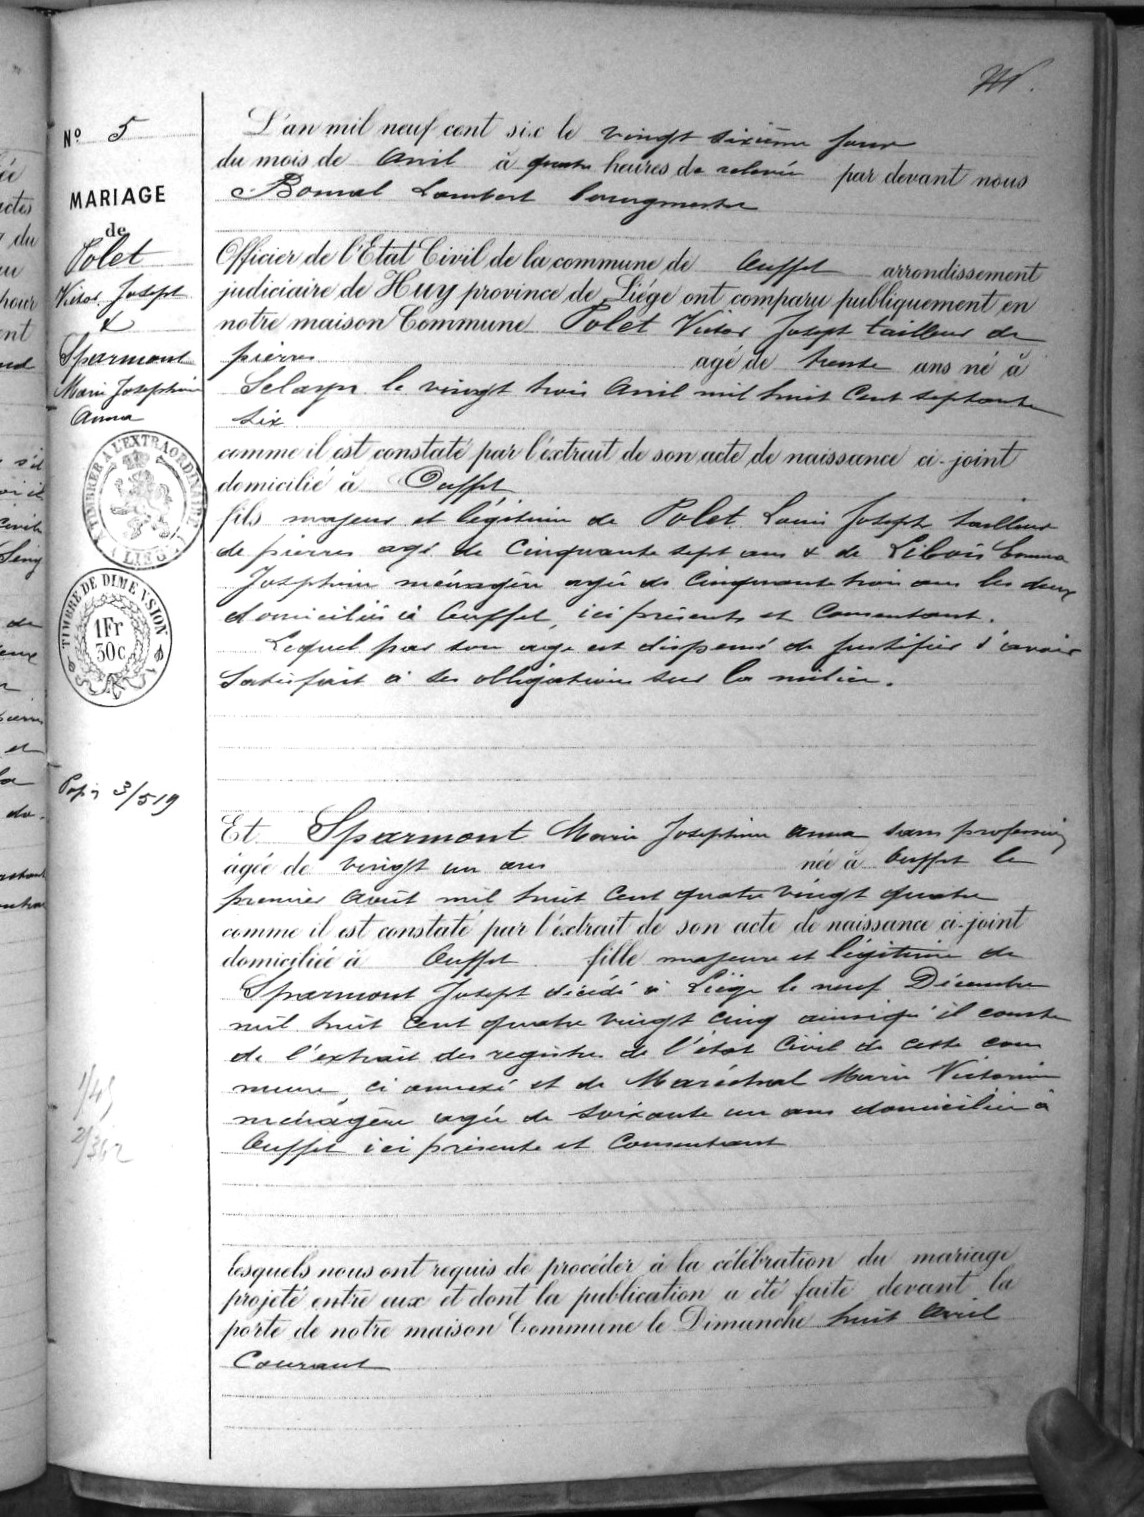 Nº 5
MARIAGE
de
Polet
Victor Joseph
&
Sparmont
Marie Joséphine
Anna
A TIMBRER A L'EXTRAORDINAIRE
LIEGE
TIMBRE DE DIMENSION
1Fr
30c
3/519
L'an mil neuf cent six le vingt sixième jour
du mois de Avril à quatre heures de relevée par devant nous
Bonmal Lambert bourgmestre
Officier de l'Etat Civil de la commune de Ouffet arrondissement
judiciaire de Huy province de Liége ont comparu publiquement en
notre maison Commune Polet Victor Joseph tailleur de
pierres agé de trente ans né à
Sclayn le vingt trois Avril mil huit Cent septante
six
comme il est constaté par l'extrait de son acte de naissance ci-joint
domicilié à Ouffet
fils majeur et légitime de Polet Louis Joseph tailleur
de pierres agé de Cinquante sept ans & de Libois Emma
Joséphine ménagère agée de Cinquante trois ans les deux
domiciliés à Ouffet, ici présents et Consentant.
Lequel par son age est dispensé de justifier d'avoir
Satisfait à ses obligations sur la milice.
Et Sparmont Marie Joséphine Anna sans profession
âgée de vingt un ans née à Ouffet le
premier Août mil huit Cent quatre vingt quatre
comme il est constaté par l'extrait de son acte de naissance ci-joint
domiciliée à Ouffet fille majeure et légitime de
Sparmont Joseph décédé à Liège le neuf Décembre
mil huit Cent quatre vingt cinq ainsi qu'il conste
de l'extrait des registres de l'état Civil de cette com
mune, ci annexé et de Maréchal Marie Victorine
ménagère agée de soixante un ans domiciliée à
Ouffet ici présente et Consentant
lesquels nous ont requis de procéder à la célébration du mariage
projeté entre eux et dont la publication a été faite devant la
porte de notre maison Commune le Dimanche huit Avril
Courant